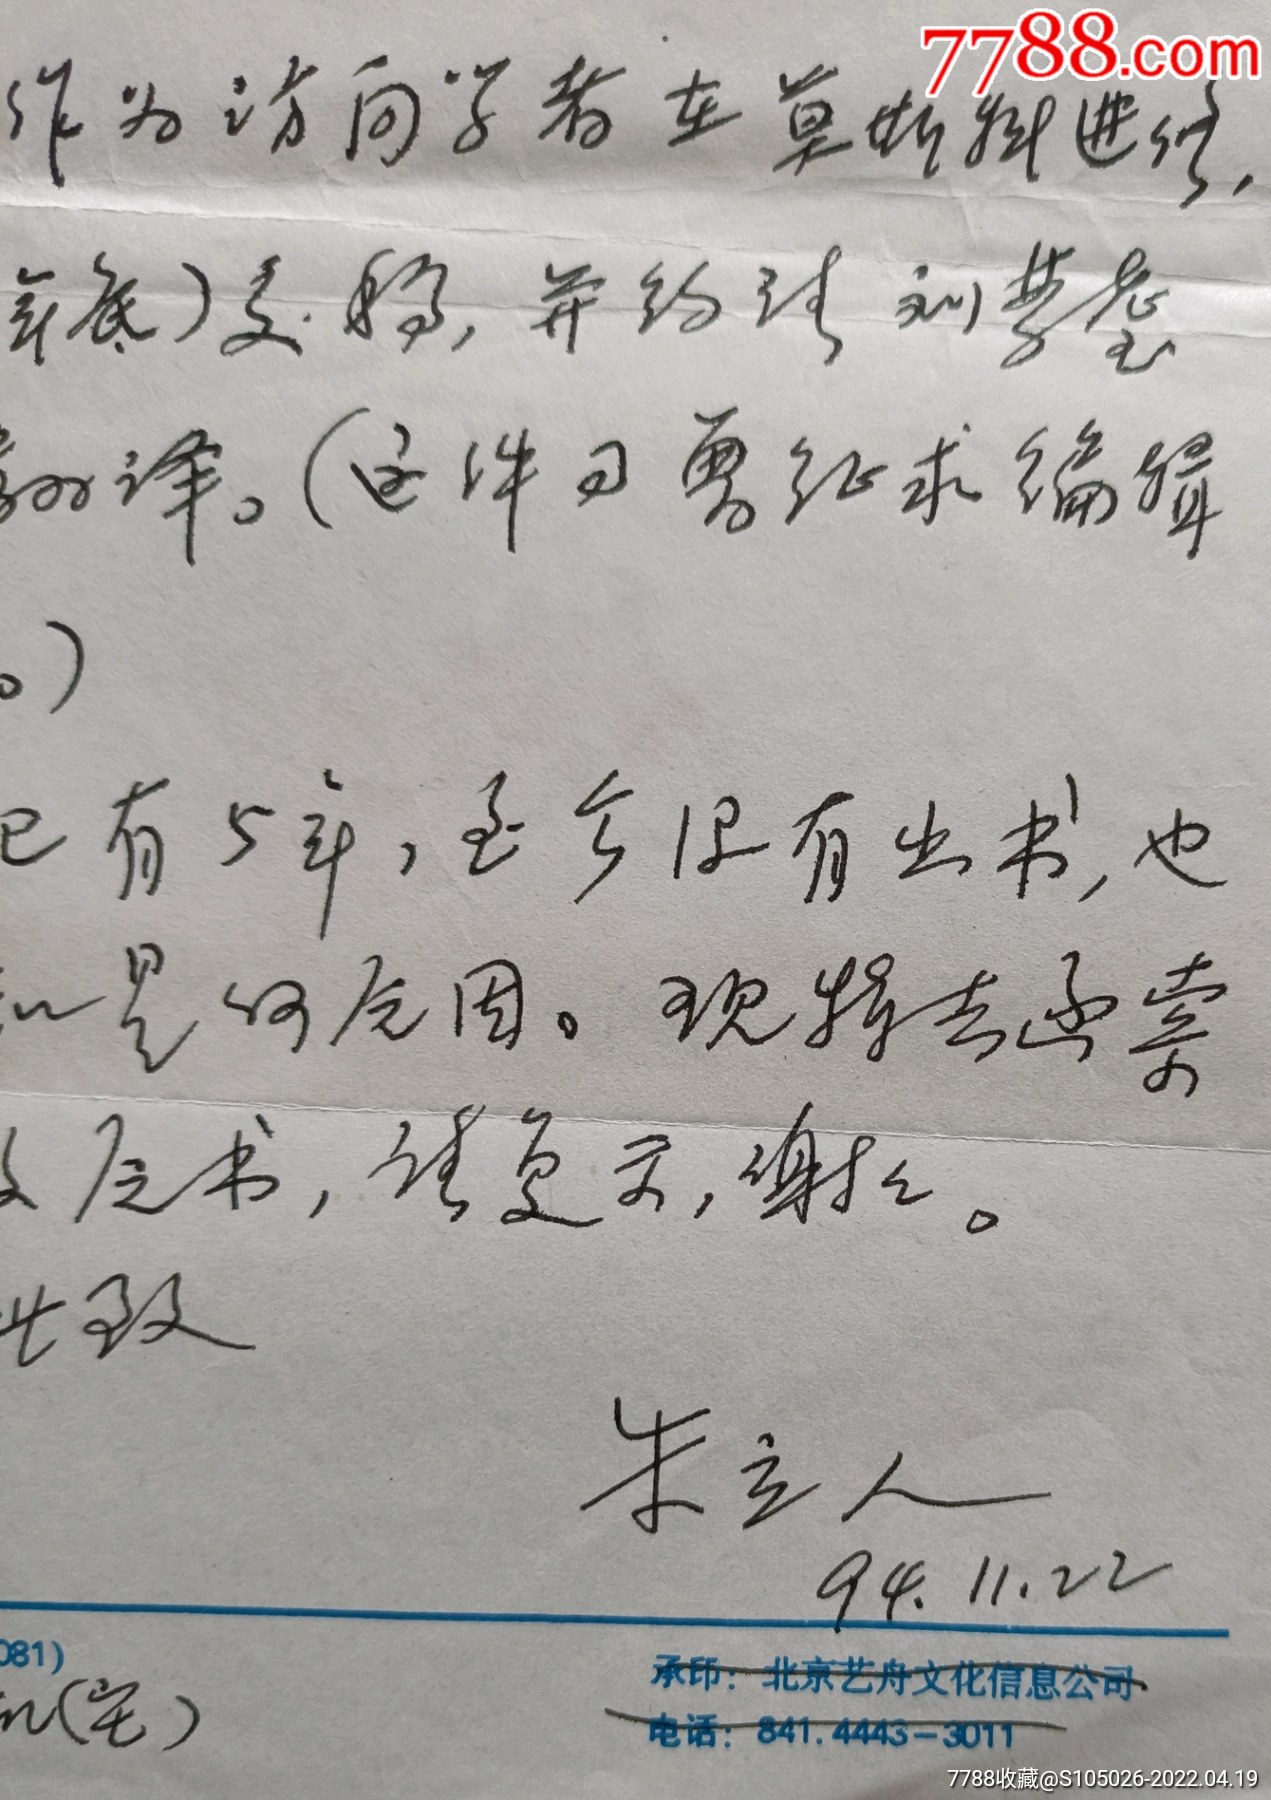 7788.com
作为访问学者在莫斯科进修，
年底)交稿，并约请刘梦
翻译。(这件事曾征求编辑
。)
已有5年，至今没有出书，也
知是何原因。现特去函索
原书，请复示，谢谢。
此致
朱立人
94.11.22
081)
(宅)
承印：北京艺舟文化信息公司
电话：841.4443-3011
7788收藏@S105026-2022.04.19